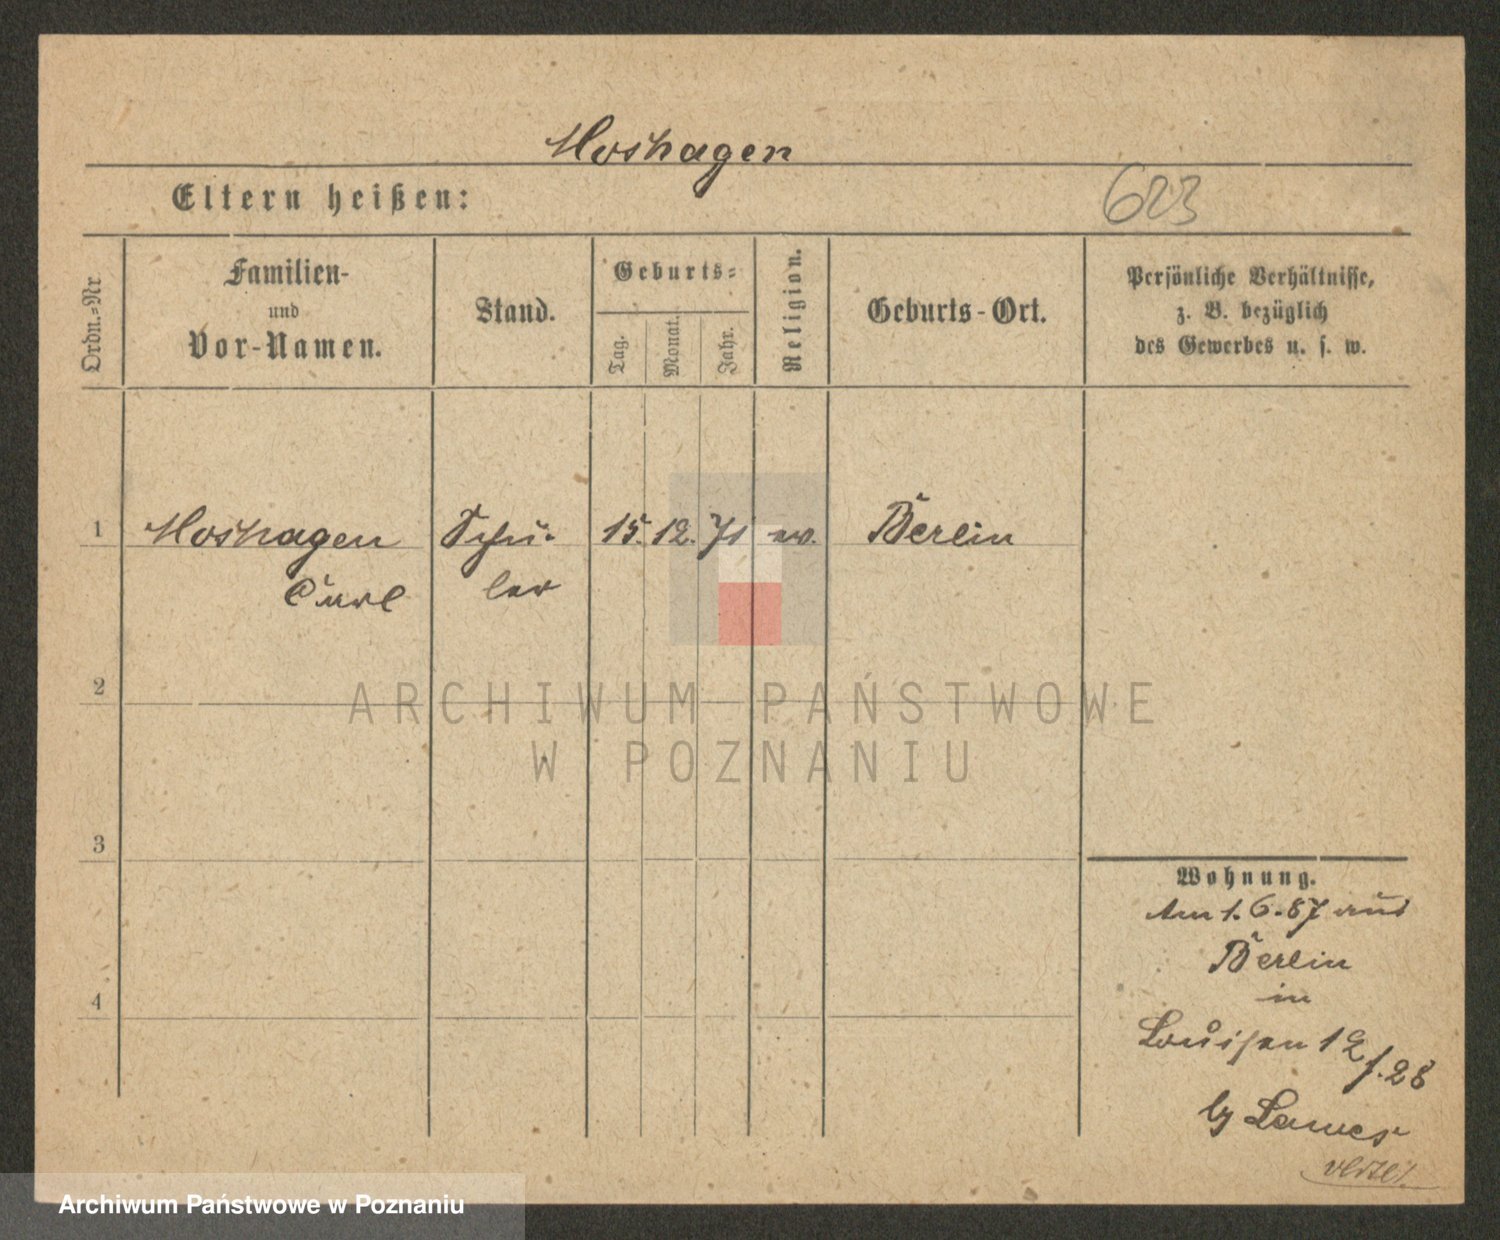 Moshagen
Eltern heißen:
623
Ordn.-Nr.
Familien-
und
Vor-Namen.
Stand.
Geburts-
Tag.
Monat.
Jahr.
Religion.
Geburts-Ort.
Persönliche Verhältnisse,
z. B. bezüglich
des Gewerbes u. s. w.
1 Moshagen Schü- 15. 12. 71 ev. Berlin
Curl ler
2
ARCHIWUM PAŃSTWOWE
W POZNANIU
3
Wohnung.
Am 1. 6. 87 aus
Berlin
in
4
Louisen 12
f. 28
by
Archiwum Państwowe w Poznaniu